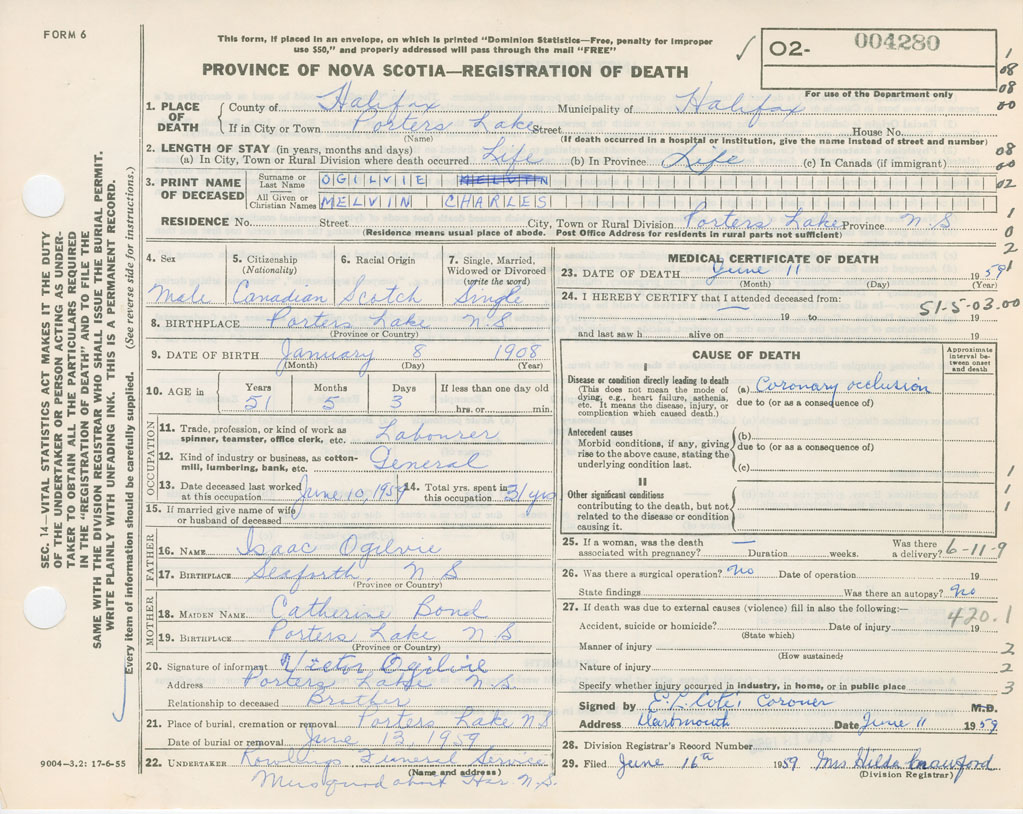 FORM 6
This form, if placed in an envelope, on which is printed "Dominion Statistics—Free, penalty for improper
use $50," and properly addressed will pass through the mail "FREE"
✓ O2- 004280
PROVINCE OF NOVA SCOTIA—REGISTRATION OF DEATH
For use of the Department only
1. PLACE OF DEATH { County of Halifax Municipality of Halifax
If in City or Town Porters Lake Street House No.
(Name) (If death occurred in a hospital or institution, give the name instead of street and number)
2. LENGTH OF STAY (in years, months and days)
(a) In City, Town or Rural Division where death occurred Life (b) In Province Life (c) In Canada (if immigrant)
3. PRINT NAME OF DECEASED
Surname or Last Name OGILVIE MELVIN
All Given or Christian Names MELVIN CHARLES
RESIDENCE No. Street City, Town or Rural Division Porters Lake Province N.S
(Residence means usual place of abode. Post Office Address for residents in rural parts not sufficient)
1
08
08
00
08
00
02
1
0
2
1
4. Sex 5. Citizenship (Nationality) 6. Racial Origin 7. Single, Married, Widowed or Divorced (write the word)
Male Canadian Scotch Single
8. BIRTHPLACE Porters Lake N.S
(Province or Country)
9. DATE OF BIRTH January 8 1908
(Month) (Day) (Year)
10. AGE in Years Months Days If less than one day old
51 5 3 hrs. or min.
OCCUPATION
11. Trade, profession, or kind of work as spinner, teamster, office clerk, etc. Labourer
12. Kind of industry or business, as cotton-mill, lumbering, bank, etc. General
13. Date deceased last worked at this occupation June 10, 1959 14. Total yrs. spent in this occupation 31 yrs
15. If married give name of wife or husband of deceased
FATHER
16. NAME Isaac Ogilvie
17. BIRTHPLACE Seaforth N S
(Province or Country)
MOTHER
18. MAIDEN NAME Catherine Bond
19. BIRTHPLACE Porters Lake N S
(Province or Country)
20. Signature of informant Victor Ogilvie
Address Porters Lake N.S
Relationship to deceased Brother
21. Place of burial, cremation or removal Porters Lake N.S
Date of burial or removal June 13, 1959
22. UNDERTAKER Rowlings Funeral Service
(Name and address)
Musquodoboit Har. N.S.
MEDICAL CERTIFICATE OF DEATH
23. DATE OF DEATH June 11 1959
(Month) (Day) (Year)
24. I HEREBY CERTIFY that I attended deceased from:
— 19 to 19
51-5-03.00
and last saw h alive on 19
CAUSE OF DEATH
Approximate interval between onset and death
I
Disease or condition directly leading to death (a) Coronary occlusion
(This does not mean the mode of dying, e.g., heart failure, asthenia, etc. It means the disease, injury, or complication which caused death.)
due to (or as a consequence of)
Antecedent causes
Morbid conditions, if any, giving rise to the above cause, stating the underlying condition last.
(b)
due to (or as a consequence of)
(c)
II
Other significant conditions
contributing to the death, but not related to the disease or condition causing it.
1
1
1
25. If a woman, was the death associated with pregnancy? — Duration weeks. Was there a delivery? 6-11-9
26. Was there a surgical operation? no Date of operation 19
State findings Was there an autopsy? no
27. If death was due to external causes (violence) fill in also the following:—
420.1
Accident, suicide or homicide? Date of injury 19
(State which)
Manner of injury 2
(How sustained)
Nature of injury 2
Specify whether injury occurred in industry, in home, or in public place 3
Signed by E.L. Cote, Coroner M.D.
Address Dartmouth Date June 11 1959
28. Division Registrar's Record Number
29. Filed June 16th 1959 Mrs Hilda Crawford
(Division Registrar)
SEC. 14—VITAL STATISTICS ACT MAKES IT THE DUTY
OF THE UNDERTAKER OR PERSON ACTING AS UNDER-
TAKER TO OBTAIN ALL THE PARTICULARS REQUIRED
IN THE "REGISTRATION OF DEATH" AND FILE THE
SAME WITH THE DIVISION REGISTRAR WHO SHALL ISSUE THE BURIAL PERMIT.
WRITE PLAINLY WITH UNFADING INK. THIS IS A PERMANENT RECORD.
Every item of information should be carefully supplied. (See reverse side for instructions.)
9004—3.2: 17-6-55